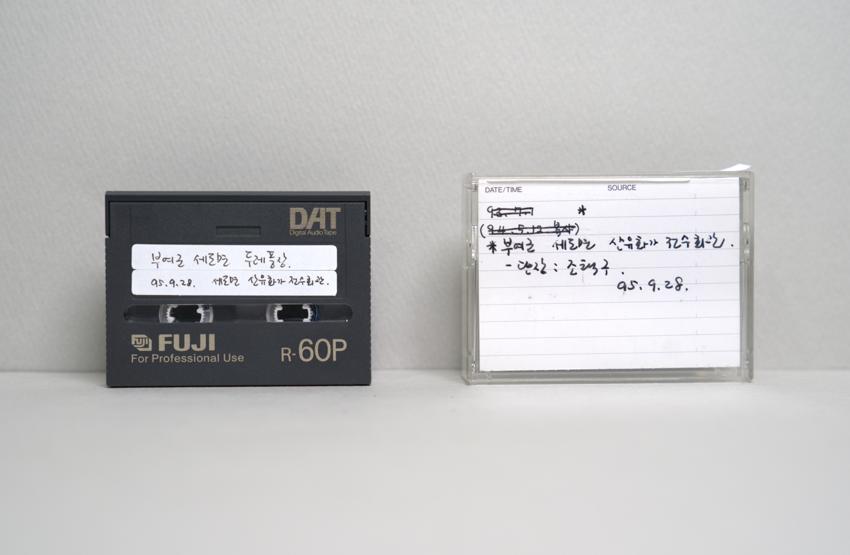 DAT
Digital Audio Tape
부여군 세도면 두레풍장.
95.9.28. 세도면 산유화가 전수회관.
FUJI
FUJI
For Professional Use
R-60P
DATE/TIME SOURCE
*
* 부여군 세도면 산유화가 전수회관.
- 단장 : 조택구.
95.9.28.